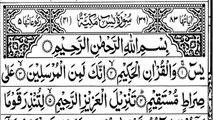 سُورَةُ يٰسٓ مَكِّيَّةٌ
بِسْمِ اللّٰهِ الرَّحْمٰنِ الرَّحِيْمِ
يٰسٓ ۝ وَالْقُرْاٰنِ الْحَكِيْمِ ۝ اِنَّكَ لَمِنَ الْمُرْسَلِيْنَ ۝ عَلٰى
صِرَاطٍ مُّسْتَقِيْمٍ ۝ تَنْزِيْلَ الْعَزِيْزِ الرَّحِيْمِ ۝ لِتُنْذِرَ قَوْمًا